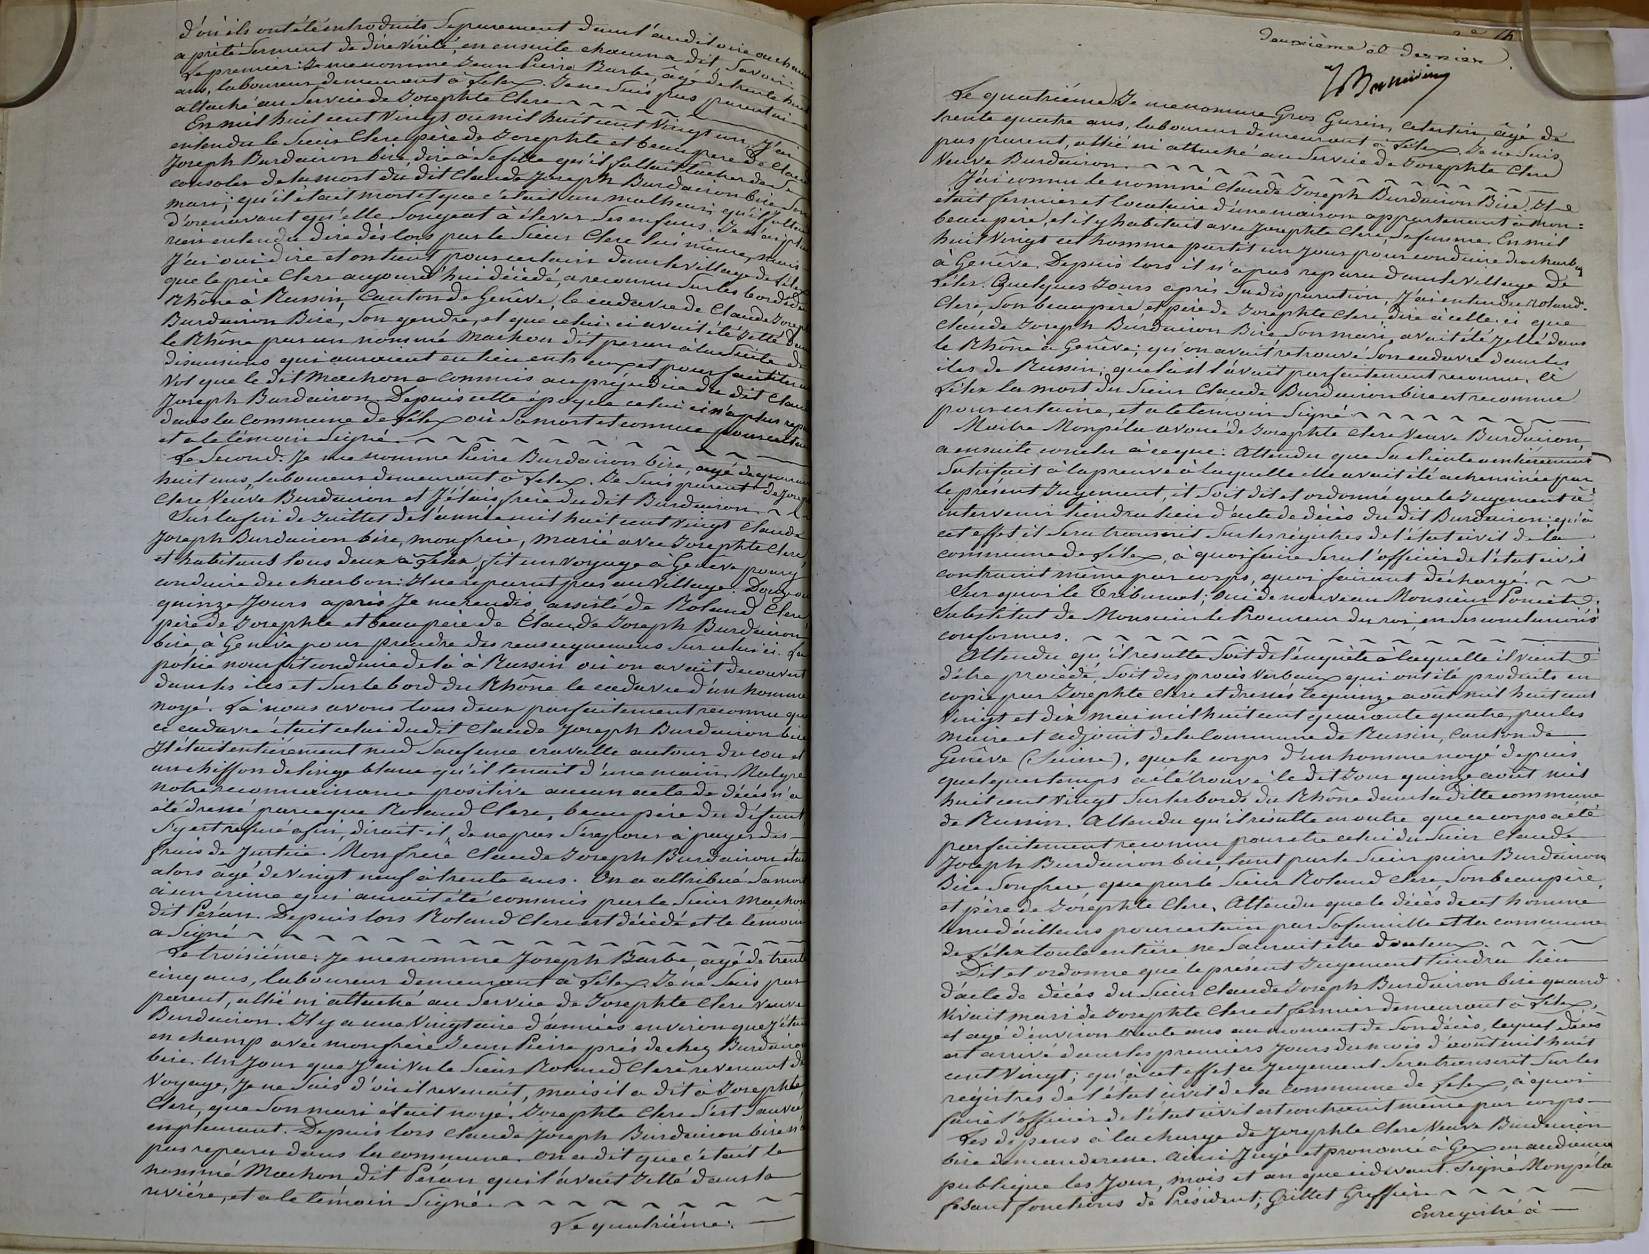 d'où ils ont été introduits séparément dans l'auditoire où chacun
a prêté serment de dire vérité, en ensuite chacun a dit, Savoir:
Le premier: Je me nomme Jean Pierre Barbe, âgé de trente huit
ans, laboureur demeurant à Lélex. Je ne suis pas parent ni
attaché au service de Josephte Clerc
En mil huit cent vingt ou mil huit cent vingt un, j'ai
entendu le Sieur Clerc père de Josephte et beau père de Claude
Joseph Burdairon bire, dire à sa fille qu'il fallait tâcher de se
consoler de la mort du dit Claude Joseph Burdairon bire son
mari; qu'il était mort et que c'était un malheur; qu'il fallait
d'orenavant qu'elle songeat à élever ses enfans. Je n'ai plus
rien entendu dire dès lors par le Sieur Clerc lui même, mais
J'ai ouï dire et on tient pour certain dans le village de Lélex
que le père Clerc aujourd'hui décédé, a reconnu sur les bords du
Rhône à Russin, Canton de Genève, le cadavre de Claude Joseph
Burdairon Biré, son gendre, et que celui-ci avait été jetté dans
le Rhône par un nommé Machon dit peran à la suite de
discussions qui auraient eu lieu entr'eux, et pour faciliter un
vol que le dit Machon a commis au préjudice du dit Claude
Joseph Burdairon. Depuis cette époque celui ci n'a plus reparu
dans la commune de Lélex où sa mort est connue pour certaine
et a le témoin signé
Le Second. Je me nomme Pierre Burdairon bire, âgé de quarante
huit ans, laboureur demeurant à Lélex. Je suis parent de Josephte
Clerc Veuve Burdairon et J'étais frère du dit Burdairon
Sur la fin de Juillet de l'année mil huit cent vingt Claude
Joseph Burdairon bire, mon frère, marié avec Josephte Clerc
et habitant tous deux à Lélex, fit un voyage à Genève pour y
conduire du charbon: Il ne reparut pas au village. Douze ou
quinze Jours après Je me rendis, assisté de Roland Clerc
père de Josephte et beau père de Claude Joseph Burdairon
bire, à Genève pour prendre des renseignemens sur celui-ci. La
police nous fit conduire de là à Russin où on avait découvert
dans les iles et sur le bord du Rhône le cadavre d'un homme
noyé. Là nous avons tous deux parfaitement reconnu que
ce cadavre était celui du dit Claude Joseph Burdairon bire
Il était entièrement nud sauf une cravatte autour du cou et
un chiffon de linge blanc qu'il tenait d'une main. Malgré
notre reconnaissance positive aucun acte de décès n'a
été dressé parce que Roland Clerc, beau père du défunt
s'y est refusé afin, disait-il, de ne pas s'exposer à payer des
frais de Justice. Mon frère Claude Joseph Burdairon était
alors âgé de vingt neuf à trente ans. On a attribué sa mort
à un crime qui aurait été commis par le Sieur Machon
dit Péran. Depuis lors Roland Clerc est décédé et le témoin
a signé
Le troisième: Je me nomme Joseph Barbe, âgé de trente
cinq ans, laboureur demeurant à Lélex. Je ne suis pas
parent, allié ni attaché au service de Josephte Clerc Veuve
Burdairon. Il y a une vingtaine d'années environ que j'étais
en champ avec mon frère Jean Pierre près de chez Burdairon
bire. Un jour que J'ai vu le Sieur Roland Clerc revenant de
voyage, Je ne sais d'où il revenait, mais il a dit à Josephte
Clerc, que son mari était noyé. Josephte Clerc s'est sauvée
en pleurant. Depuis lors Claude Joseph Burdairon bire n'a
pas reparu dans la commune. On a dit que c'était le
nommé Machon dit Péran qui l'avait jetté dans la
rivière, et a le témoin signé
Le quatrième:
deuxième et dernier.
Le quatrième: Je me nomme Gros Gurin, Célestin âgé de
trente quatre ans, laboureur demeurant à Lélex. Je ne suis
pas parent, allié ni attaché au service de Josephte Clerc
Veuve Burdairon
J'ai connu le nommé Claude Joseph Burdairon Bire. Il
était fermier et locataire d'une maison appartenant à mon
beau père, et il y habitait avec Josephte Clerc, sa femme. En mil
huit vingt cet homme partit un jour pour conduire du charbon
à Genève. Depuis lors il n'a pas reparu dans le village de
Lélex. Quelques Jours après sa disparution, J'ai entendu Roland
Clerc, son beau père, et père de Josephte Clerc dire à celle-ci que
Claude Joseph Burdairon Bire, son mari, avait été jetté dans
le Rhône à Genève; qu'on avait retrouvé son cadavre dans les
iles de Russin; que lui l'avait parfaitement reconnu. A
Lélex la mort du Sieur Claude Burdairon bire est reconnue
pour certaine, et a le témoin signé
Maitre Monpéla avoué de Josephte Clerc Veuve Burdairon,
a ensuite conclu à ce que: Attendu que sa cliente a entièrement
satisfait à la preuve à laquelle elle avait été acheminée par
le présent Jugement, il soit dit et ordonné que le Jugement à
intervenir tiendra lieu d'acte de décès du dit Burdairon: qu'à
cet effet il sera transcrit sur les régistres de l'état civil de la
commune de Lélex, à quoi faire sera l'officier de l'état civil
contraint même par corps, quoi faisant déchargé.
Sur quoi le Tribunal; Ouï de nouveau Monsieur Poncet,
Substitut de Monsieur le Procureur du roi, en ses conclusions
conformes.
Attendu qu'il résulte soit de l'enquête à laquelle il vient
d'être procédé, soit des procès verbaux qui ont été produits en
copie par Josephte Clerc et dressés le quinze août mil huit cent
vingt et dix mai mil huit cent quarante quatre, par les
maire et adjoint de la commune de Russin, canton de
Genève (Suisse), que le corps d'un homme noyé depuis
quelques temps a été trouvé le dit Jour quinze août mil
huit cent vingt sur les bords du Rhône dans la ditte commune
de Russin. Attendu qu'il résulte en outre que ce corps a été
parfaitement reconnu pour être celui du Sieur Claude
Joseph Burdairon bire, tant par le Sieur pierre Burdairon
Bire son frère, que par le Sieur Roland Clerc son beau père,
et père de Josephte Clerc. Attendu que le décès de cet homme
tenu d'ailleurs pour certain par sa famille et la commune
de Lélex toute entière ne saurait être douteux.
Dit et ordonne que le présent Jugement tiendra lieu
d'acte de décès du Sieur Claude Joseph Burdairon bire quand
vivait mari de Josephte Clerc et fermier demeurant à Lélex,
et âgé d'environ trente ans au moment de son décès, lequel décès
est arrivé dans les premiers Jours du mois d'août mil huit
cent vingt; qu'à cet effet ce Jugement sera transcrit sur les
régistres de l'état civil de la commune de Lélex, à quoi
faire l'officier de l'état civil est contraint même par corps.
Les dépens à la charge de Josephte Clerc Veuve Burdairon
bire demanderesse. Ainsi Jugé et prononcé à Gex en audience
publique les Jour, mois et an que ci devant. Signé Monpéla
fesant fonctions de Président, Grillet Greffier
Enregistré à